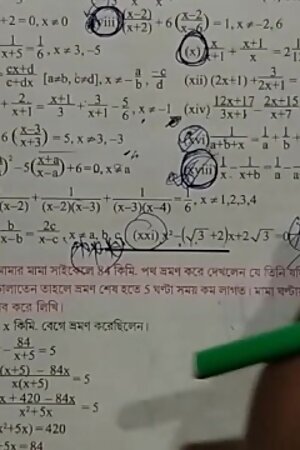 +2=0, x≠0 (viii) (x-2)/(x+2) + 6(x-2)/(x-6) = 1, x≠-2, 6
1/(x+5) = 1/6, x≠3, -5 (x) x/(x+1) + (x+1)/x = 2
(cx+d)/(c+dx) [a≠b, c≠d], x≠-a/b, -c/d (xii) (2x+1) + 3/(2x+1) =
+ 2/(x+1) = (x+1)/3 + 3/(x+1) - 5/6, x≠-1 (xiv) (12x+17)/(3x+1) - (2x+15)/(x+7)
6(x-3)/(x+3) = 5, x≠3, -3 (xvi) 1/(a+b+x) = 1/a + 1/b +
)² -5(x+a)/(x-a) +6=0, x≠a (xviii) 1/x - 1/(x+b) = 1/a -
(x-2) + 1/((x-2)(x-3)) + 1/((x-3)(x-4)) = 1/6, x≠1,2,3,4
b/(x-b) = 2c/(x-c), x≠a, b, c (xxi) x²-(√3+2)x+2√3=0
মামার মামা সাইকেলে 84 কিমি. পথ ভ্রমণ করে দেখলেন যে তিনি যদি
চালাতেন তাহলে ভ্রমণ শেষ হতে 5 ঘণ্টা সময় কম লাগত। মামা ঘণ্টায়
করে লিখি।
x কিমি. বেগে ভ্রমণ করেছিলেন।
- 84/(x+5) = 5
(x+5) - 84x / x(x+5) = 5
x + 420 - 84x / x²+5x = 5
x²+5x) = 420
5x = 84